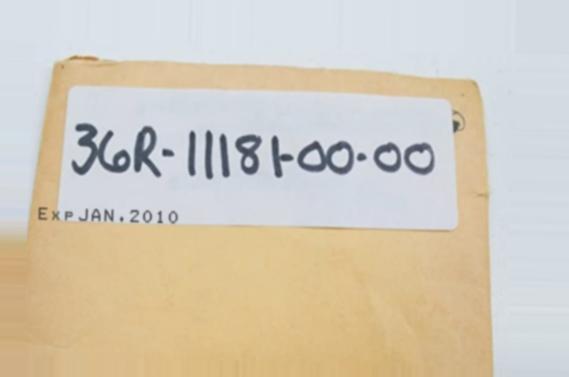 36R-11181-00-00
Exp JAN.2010